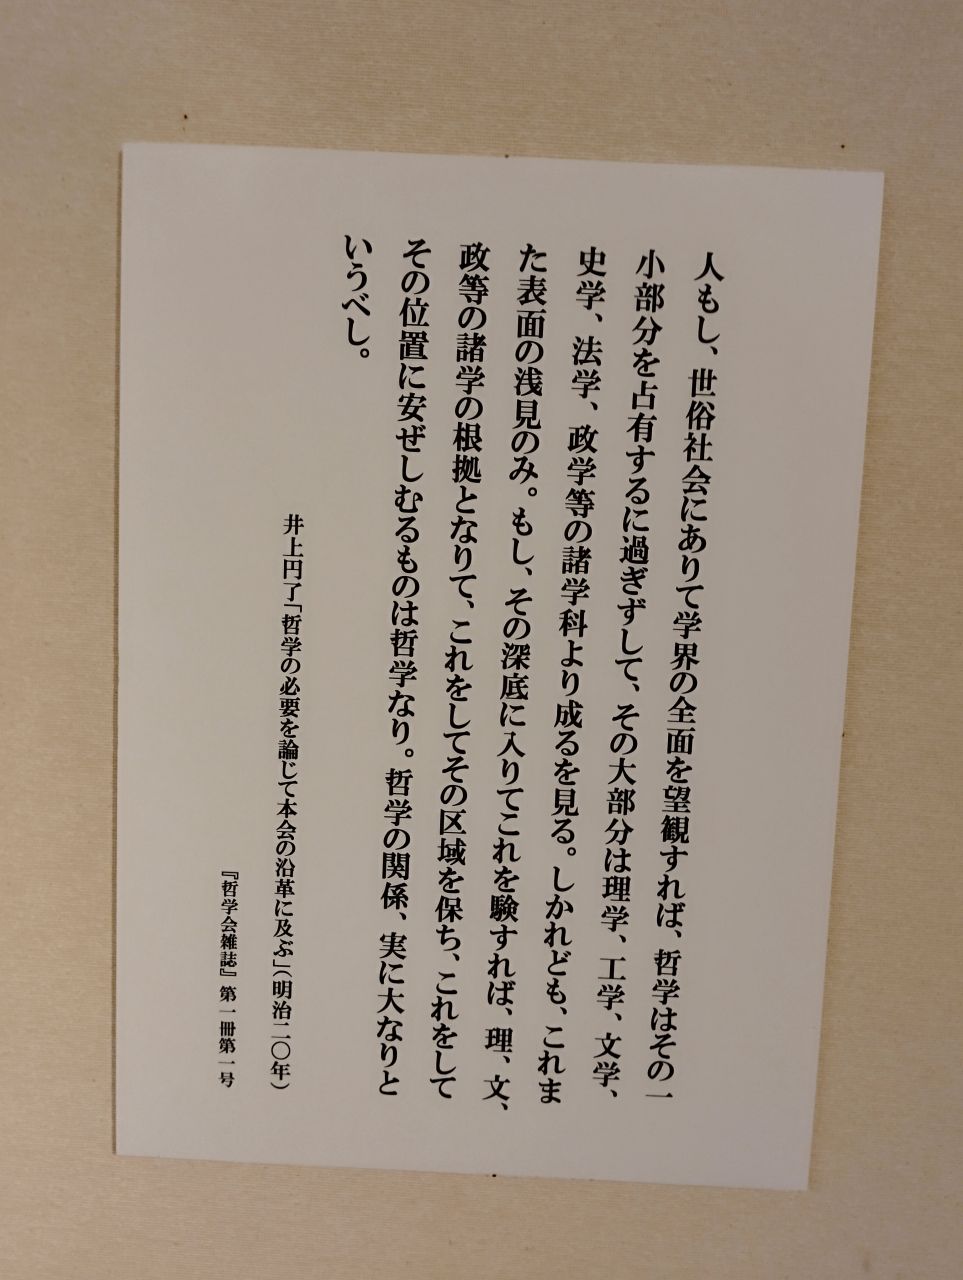 人もし、世俗社会にありて学界の全面を望観すれば、哲学はその一
小部分を占有するに過ぎずして、その大部分は理学、工学、文学、
史学、法学、政学等の諸学科より成るを見る。しかれども、これま
た表面の浅見のみ。もし、その深底に入りてこれを験すれば、理、文、
政等の諸学の根拠となりて、これをしてその区域を保ち、これをして
その位置に安ぜしむるものは哲学なり。哲学の関係、実に大なりと
いうべし。
井上円了「哲学の必要を論じて本会の沿革に及ぶ」（明治二〇年）
『哲学会雑誌』第一冊第一号